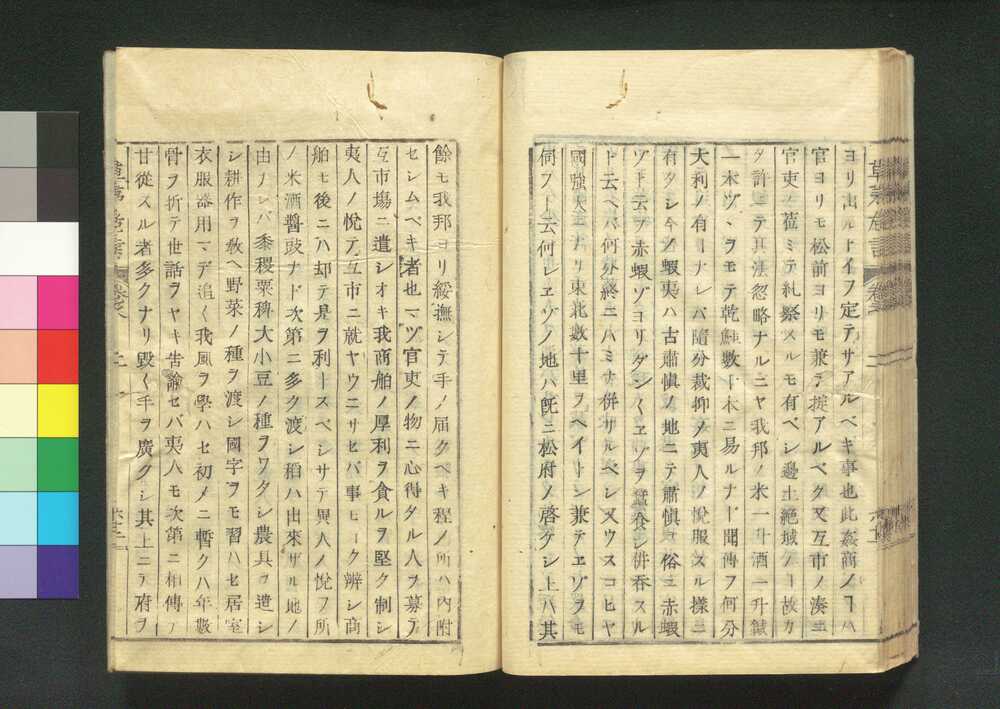 ヨリ出ルトイフ定テサアルベキ事也此姦商ノヿハ
官ヨリモ松前ヨリモ兼テ掟アルベク又互市ノ湊ニ
官吏ノ莅ミテ糺察スルモ有ベシ邉土絶域ノヿ故カ
タ許ニテ其法忽略ナルニヤ我邦ノ米一升酒一升鍼
一本ヅヽヲモテ乾鮭數十本ニ易ルナド聞傳フ何分
大利ノ有ヿナレバ隨分裁抑シ夷人ノ悅服スル様ニ
有タシ今ノ蝦夷ハ古肅愼ノ地ニテ肅愼ヲ俗ニ赤蝦
ゾト云フ赤蝦ゾヨリダン〱ヱゾヲ蠶食シ併呑スル
ト云ヘバ何分終ニハミナ併サルベシ又ウスコビヤ
國強大ニナリ東北數十里ヲヘイドン兼テヱゾヲモ
伺フト云何レヱゾノ地ハ既ニ松府ノ啓ケシ上ハ其
餘モ我邦ヨリ綏撫シテ手ノ届クベキ程ノ所ハ內附
セシムベキ者也マヅ官吏ノ物ニ心得タル人ヲ募テ
互市場ニ遣シオキ我商舶ノ厚利ヲ貪ルヲ堅ク制シ
夷人ノ悅テ互市ニ就ヤウニサセバ事モヨク辨シ商
舶モ後ニハ却テ是ヲ利トスベシサテ異人ノ悅フ所
ノ米酒醬豉ナド次第ニ多ク渡シ稻ハ出來ザル地ノ
由ナレバ黍稷粟稗大小豆ノ種ヲワタシ農具ヲ遣シ
シ耕作ヲ敎ヘ野菜ノ種ヲ渡シ國字ヲモ習ハセ居室
衣服器用マデ追〱我風ヲ學ハセ初メニ暫クハ年數
骨ヲ折テ世話ヲヤキ告諭セバ夷人モ次第ニ相傳テ
甘從スル者多クナリ毀〱手ヲ廣クシ其上ニテ府ヲ